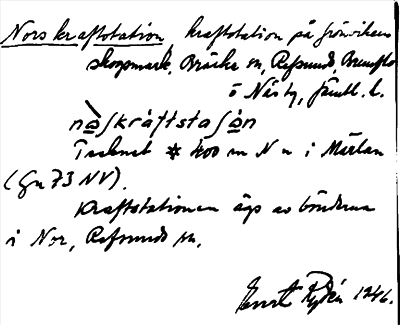 Nors kraftstation, kraftstation på Grönvikens
skogsmark, Bräcke sn, Refsunds, Brunflo
o Näs tg, Jämtl. l.
nòʃkráftstaʃòn
Tecknet ✲ 400 m N n i Märlan
(Gn 73 NV).
Kraftstationen ägs av bönderna
i Nor, Refsunds sn.
Ernst Rydén 1946.